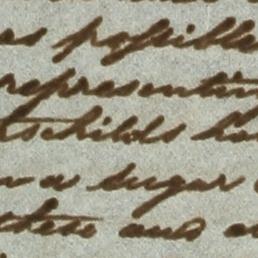 as possible
representin
tschilds ha
n a sugar
these and a